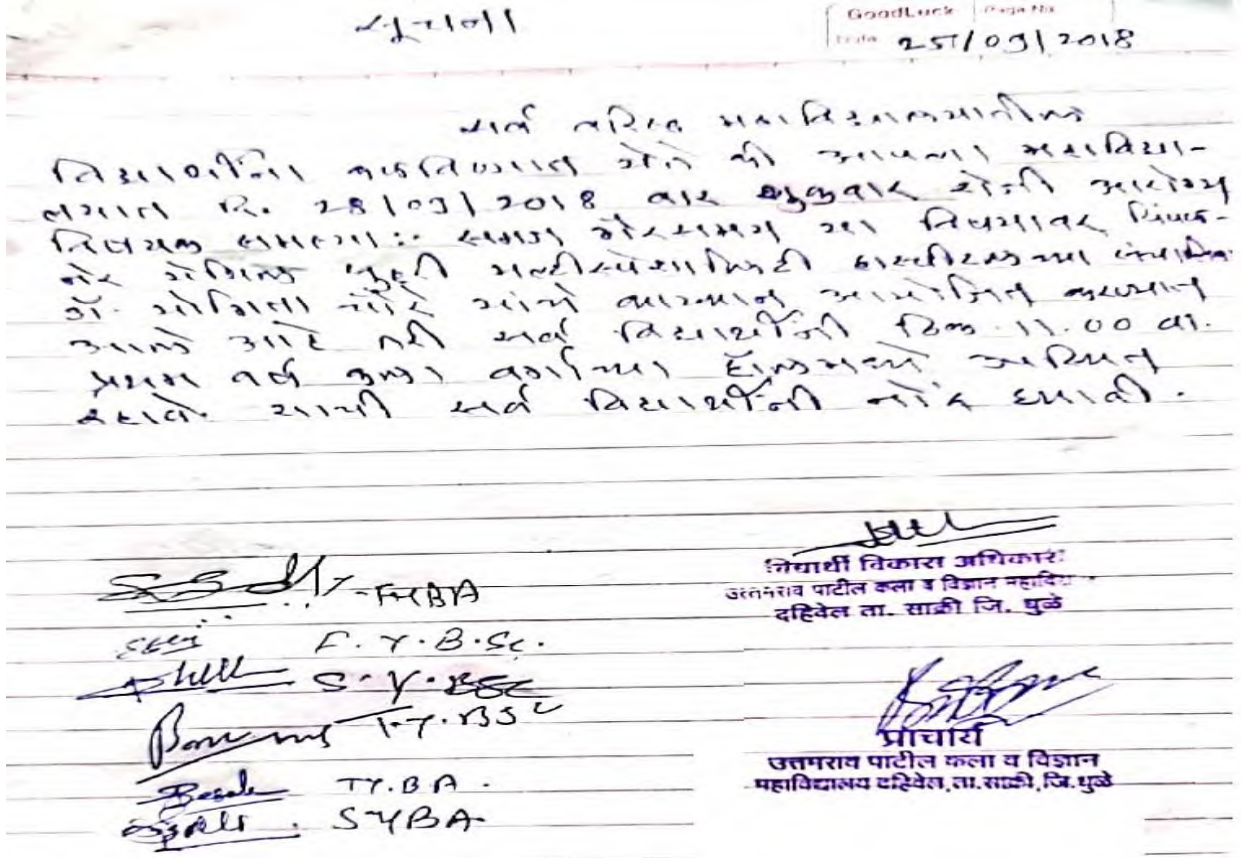 सूचना
GoodLuck Page No
Date 25/09/2018
सर्व वरिष्ठ महाविद्यालयातील
विद्यार्थीना कळविण्यात येते की आपल्या महाविद्या-
लयात दि. 28/09/2018 वार शुक्रवार रोजी आरोग्य
विषयक समस्या: समज गैरसमज या विषयावर पिंपळ-
नेर येथील मल्टीस्पेशालिटी हास्पीटलच्या
डॉ. योगिता मोरे यांचे व्याख्यान आयोजित करण्यात
आले आहे तरी सर्व विद्यार्थीनी ठिक 11.00 वा.
प्रथम वर्ष कला वर्गाच्या हॉलमध्ये उपस्थित
रहावे. याची सर्व विद्यार्थीनी नोंद घ्यावी.
विद्यार्थी विकास अधिकारी
उत्तमराव पाटील कला व विज्ञान महाविद्या
दहिवेल ता. साक्री जि. धुळे
- FYBA
F.Y.B.Sc.
S.Y.BSC
T.Y.BSC
TY.BA.
SYBA
प्राचार्य
उत्तमराव पाटील कला व विज्ञान
महाविद्यालय दहिवेल, ता. साक्री, जि. धुळे